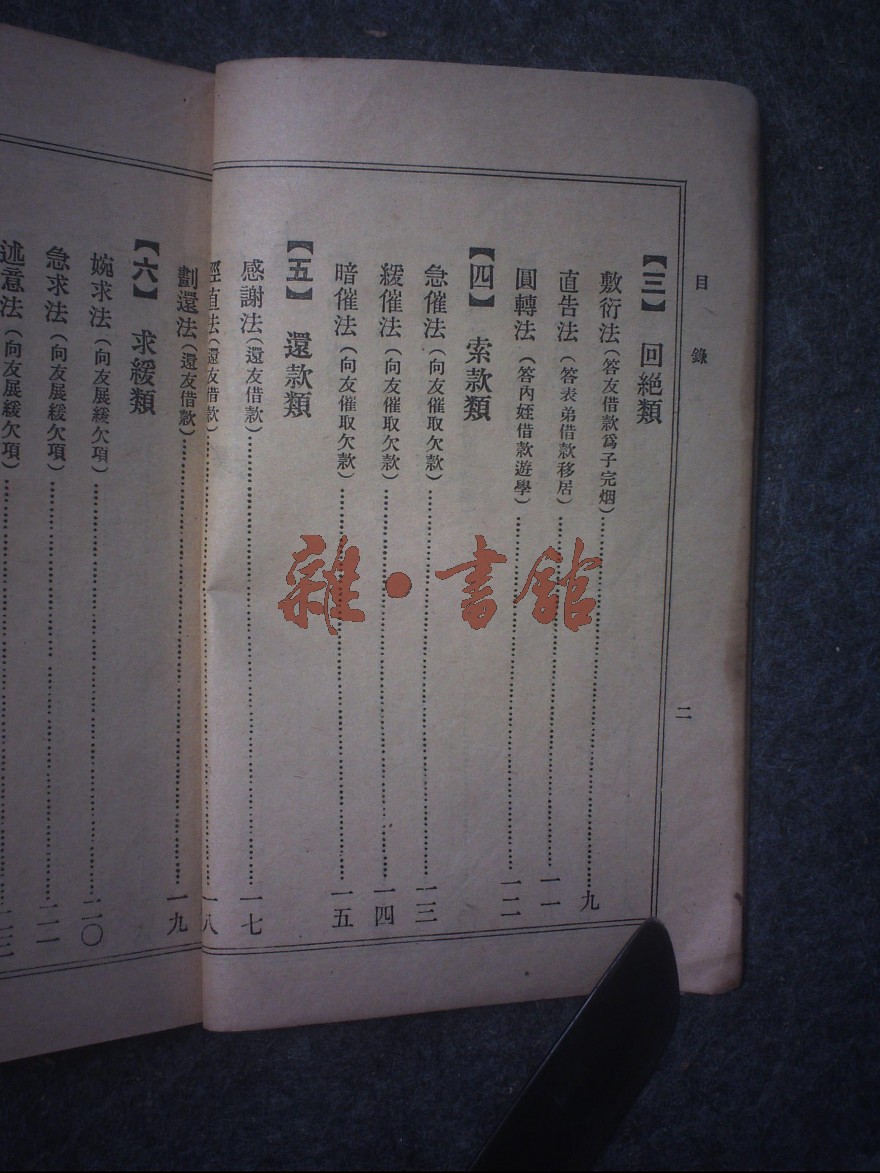 目錄
二
【(三)】 回絕類
敷衍法(答友借款爲子完烟)九
直告法(答表弟借款移居)一一
圓轉法(答內姪借款遊學)一二
【(四)】 索款類
急催法(向友催取欠款)一三
緩催法(向友催取欠款)一四
暗催法(向友催取欠款)一五
【(五)】 還款類
感謝法(還友借款)一七
徑直法(還友借款)一八
劃還法(還友借款)一九
【(六)】 求緩類
婉求法(向友展緩欠項)二〇
急求法(向友展緩欠項)二一
述意法(向友展緩欠項)二三
雜·書館